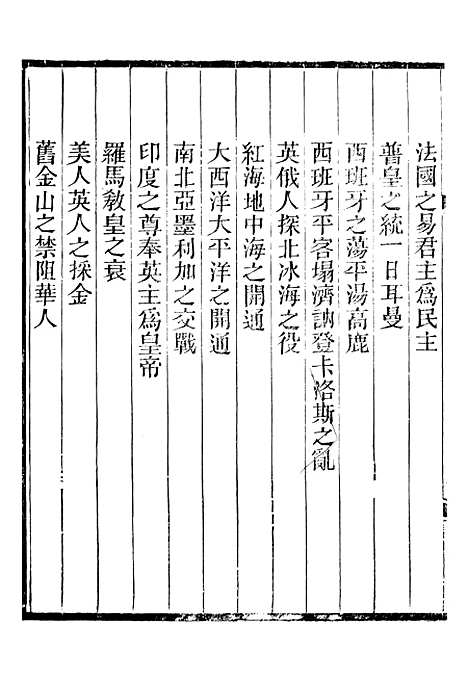 法國之易君主爲民主
普皇之統一日耳曼
西班牙之蕩平湯高鹿
西班牙平客塌濟訥登卡洛斯之亂
英俄人探北冰海之役
紅海地中海之開通
大西洋大平洋之開通
南北亞墨利加之交戰
印度之尊奉英主爲皇帝
羅馬敎皇之衰
美人英人之採金
舊金山之禁阻華人